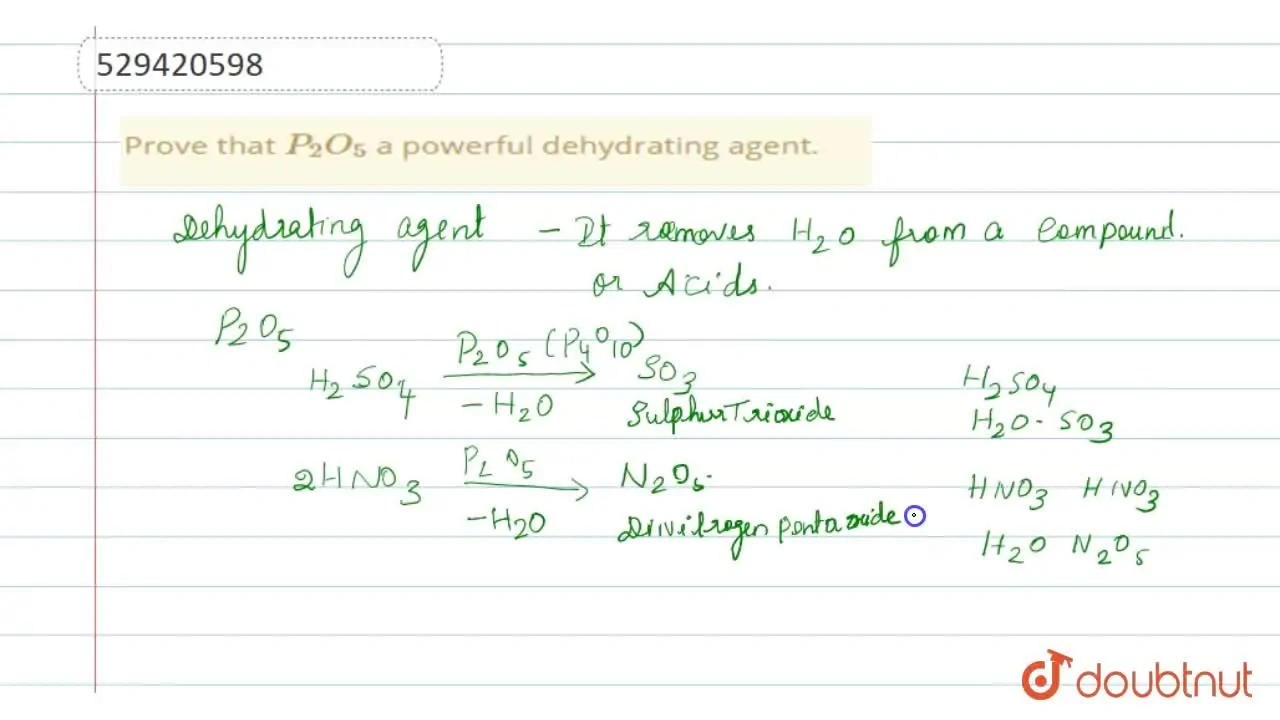 529420598
Prove that P₂O₅ a powerful dehydrating agent.
Dehydrating agent – It removes H₂O from a Compound.
or Acids.
P₂O₅
H₂SO₄ P₂O₅ (P₄O₁₀) → –H₂O SO₃
Sulphur Trioxide
2HNO₃ P₂O₅ → –H₂O N₂O₅.
Dinitrogen pentaoxide
H₂SO₄
H₂O · SO₃
HNO₃ HNO₃
H₂O N₂O₅
doubtnut